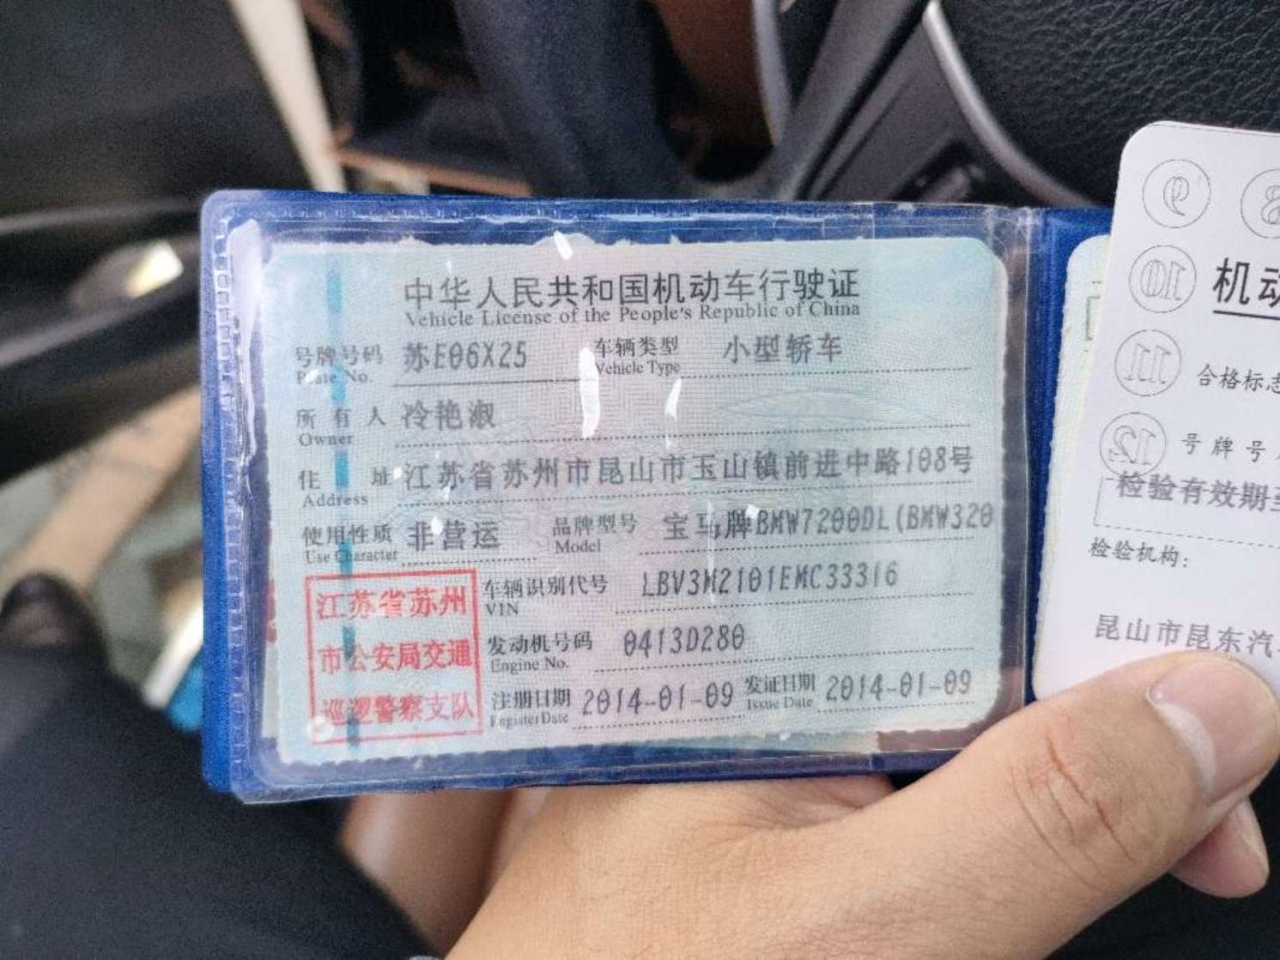 中华人民共和国机动车行驶证
Vehicle License of the People's Republic of China
号牌号码 苏E06X25 车辆类型 小型轿车
Plate No. Vehicle Type
所有人 冷艳淑
Owner
住址 江苏省苏州市昆山市玉山镇前进中路108号
Address
使用性质 非营运 品牌型号 宝马牌BMW7200DL(BMW320
Use Character Model
江苏省苏州
市公安局交通
巡逻警察支队
车辆识别代号 LBV3M2101EMC33316
VIN
发动机号码 0413D280
Engine No.
注册日期 2014-01-09 发证日期 2014-01-09
Register Date Issue Date
9
8
10
机动
11
合格标志
12
号牌号
检验有效期至
检验机构：
昆山市昆东汽